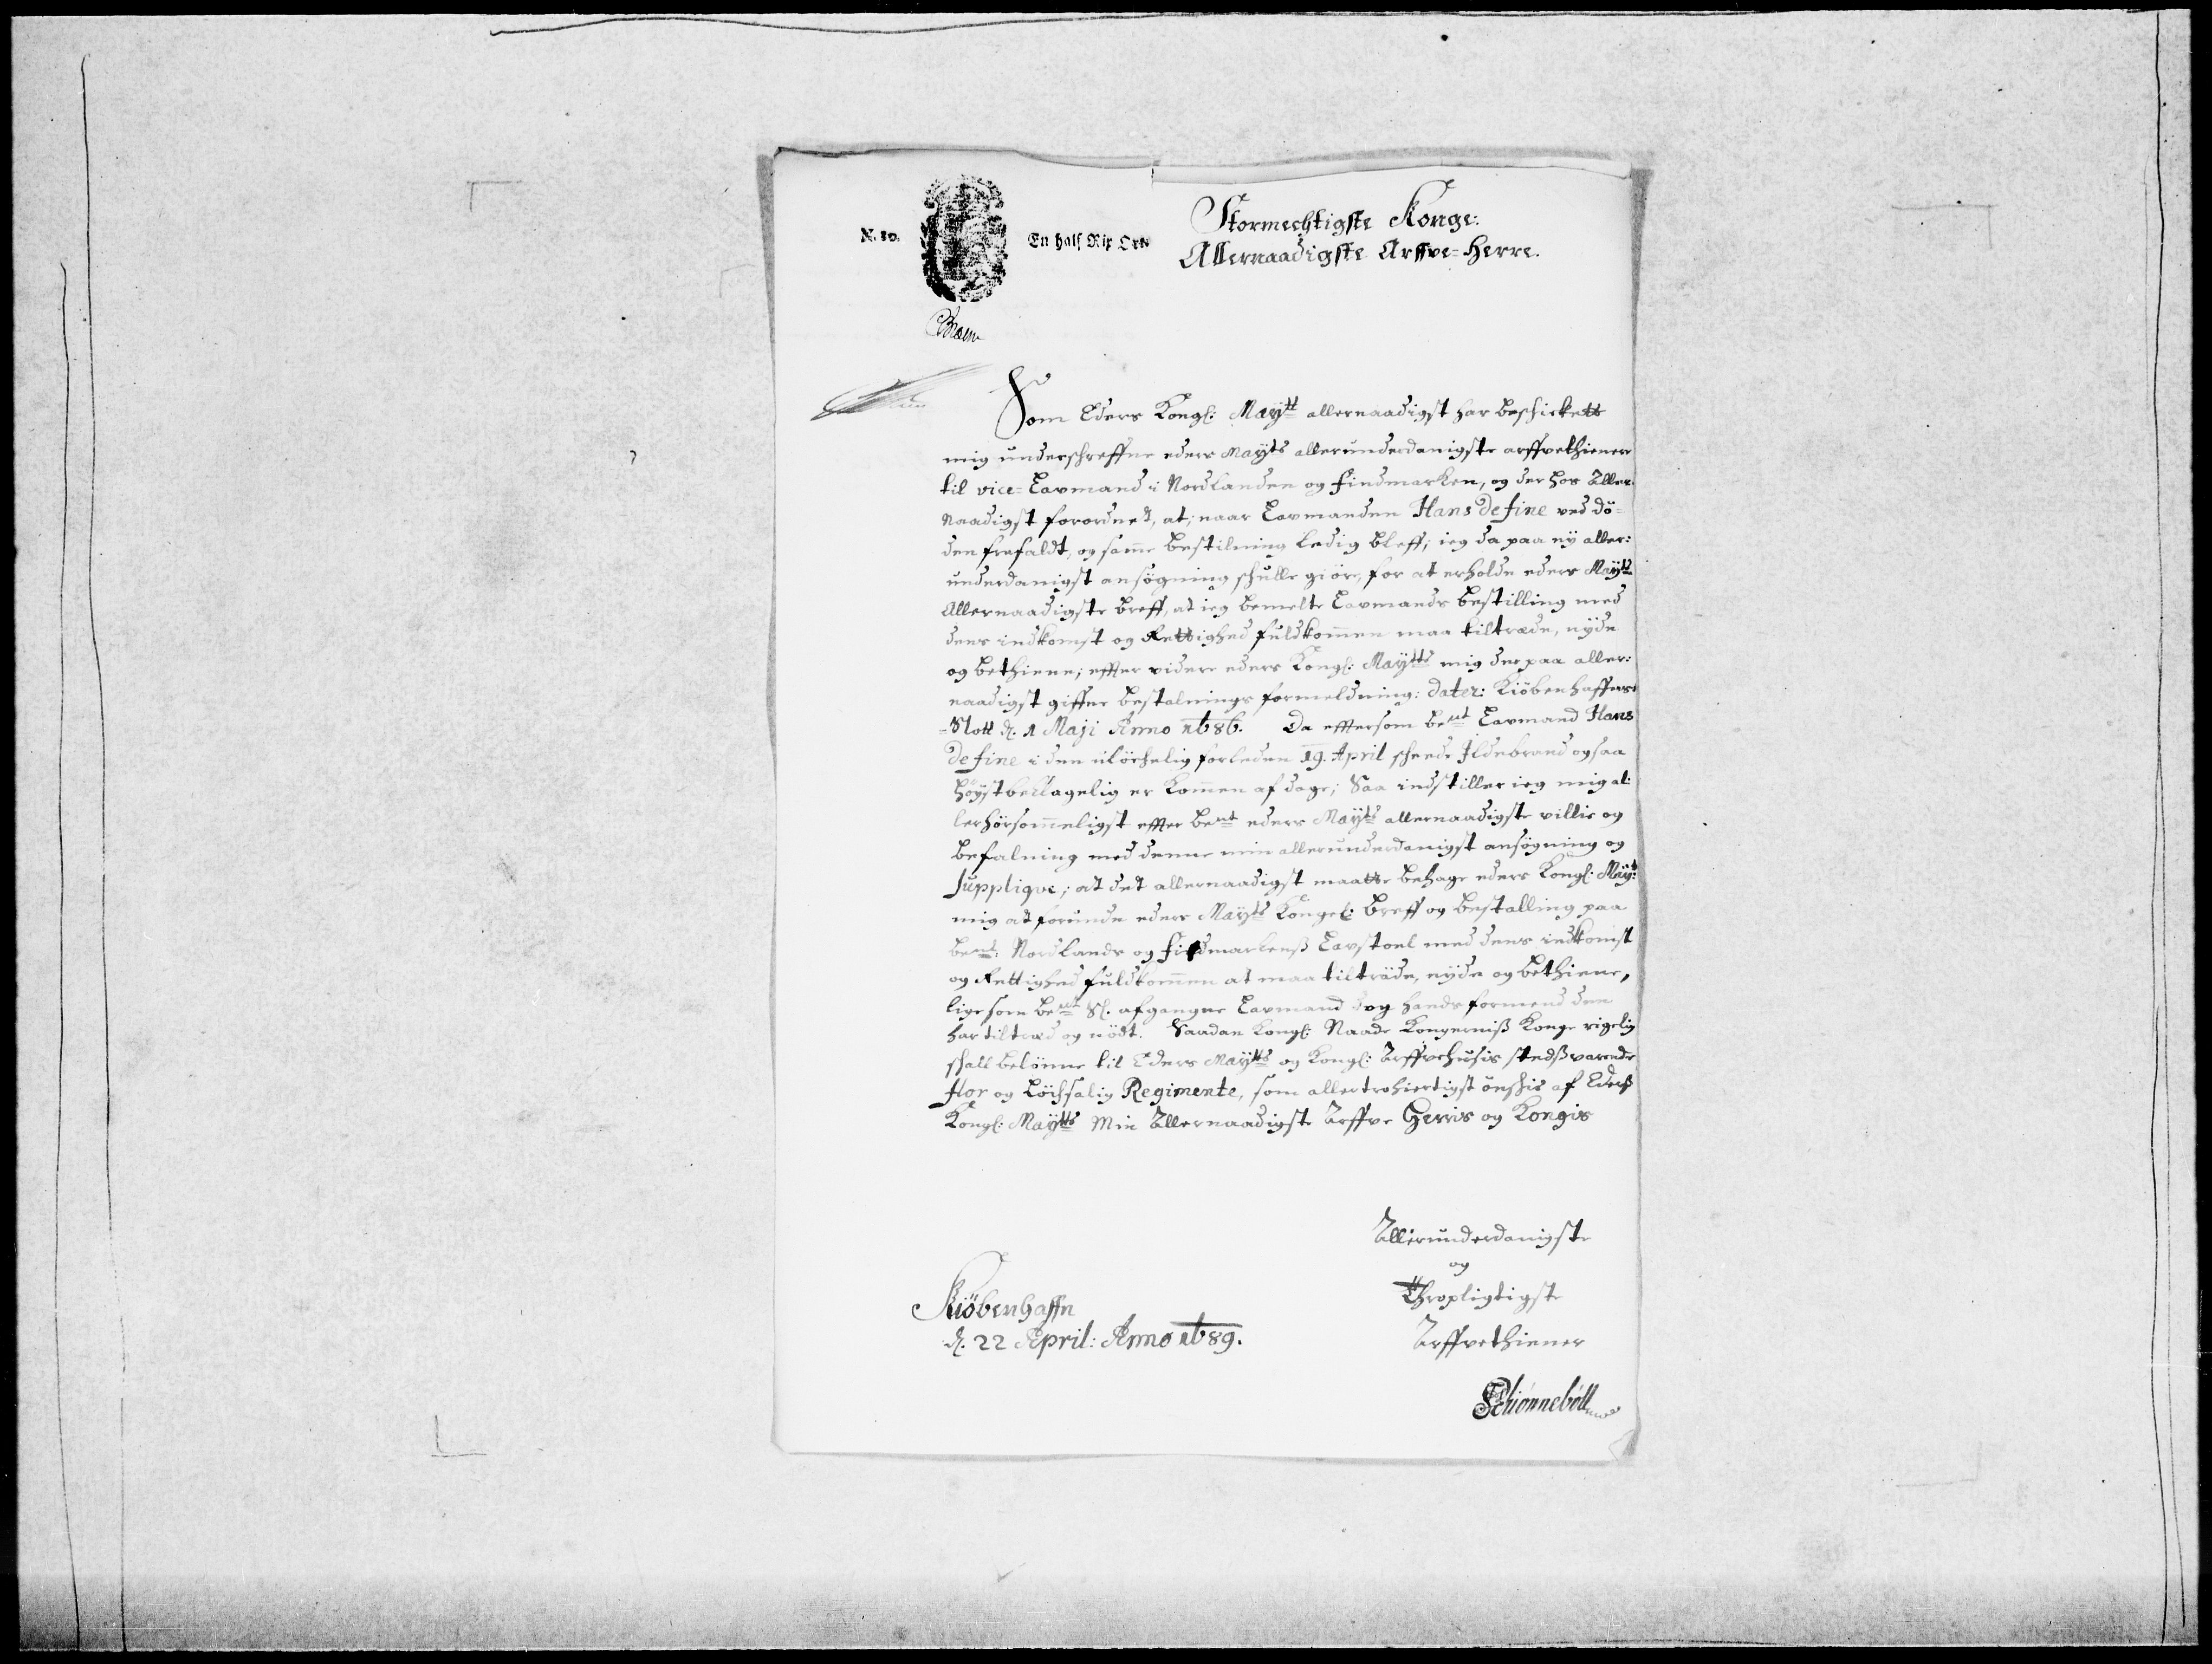 N. 30.
En half Rix Ort
Stormechtigste Konge:
Allernaadigste Arffve-Herre.
Som Eders Kongl: Maytt allernaadigst har beschickett
mig underschreffne eders Mayts allerunderdanigste arffvethienere
til vice-Lavmand i Nordlanden og Findmarken, og der hos Aller-
naadigst forordned, at, naar Lavmanden Hans de fine ved dö-
den frafaldt, og samme bestilning ledig bleff; ieg da paa ny aller:
underdanigst ansögning schulle giöre, for at erholde eders Mayts
Allernaadigste breff, at ieg bemelte Lavmands bestilling med
dens indkomst og Rettighed fuldkommen maa tiltræde, nyde
og bethiene; effter videre eders Kongl: Maytts mig derpaa aller:
naadigst giffne bestalnings formeldning: dater: Kiöbenhaffens
-Slott d. 1 Maji Anno 1686. Da efftersom bent Lavmand Hans
de fine i den ulöchelig forleden 19. April scheede Ildebrand ogsaa
höystbeklagelig er kommen af dage; Saa indstiller ieg mig al:
lerhörsommeligst effter bent eders Mayts allernaadigste villie og
befalning med denne min allerunderdanigst ansögning og
Supplique; at det allernaadigst maatte behage eders Kongl: Mayts
mig at forunde eders Mayts Kongel: breff og bestalling paa
bent: Nordlands og Findmarkenß Lavstoel med dens indkomst
og Rettighed fuldkommen at maa tiltræde, nyde og bethiene,
ligesom bent Sl. afgangne Lavmand og hands formend den
har tiltræd og nödt. Saadan Kongl: Naade Kongerniß Konge rigelig
schall belönne til Eders Maytts og Kongl: Arffvehusis stedßvarende
flor og Löchsalig Regimente, som allertrohiertigst önschis af Ederß
Kongl: Maytts Min Allernaadigste Arffve Herris og Kongis
Allerunderdanigste
og
Thropligtigste
Arffvethiener
Kiöbenhaffn
d. 22 April: Anno 1689.
Schiønnebøll